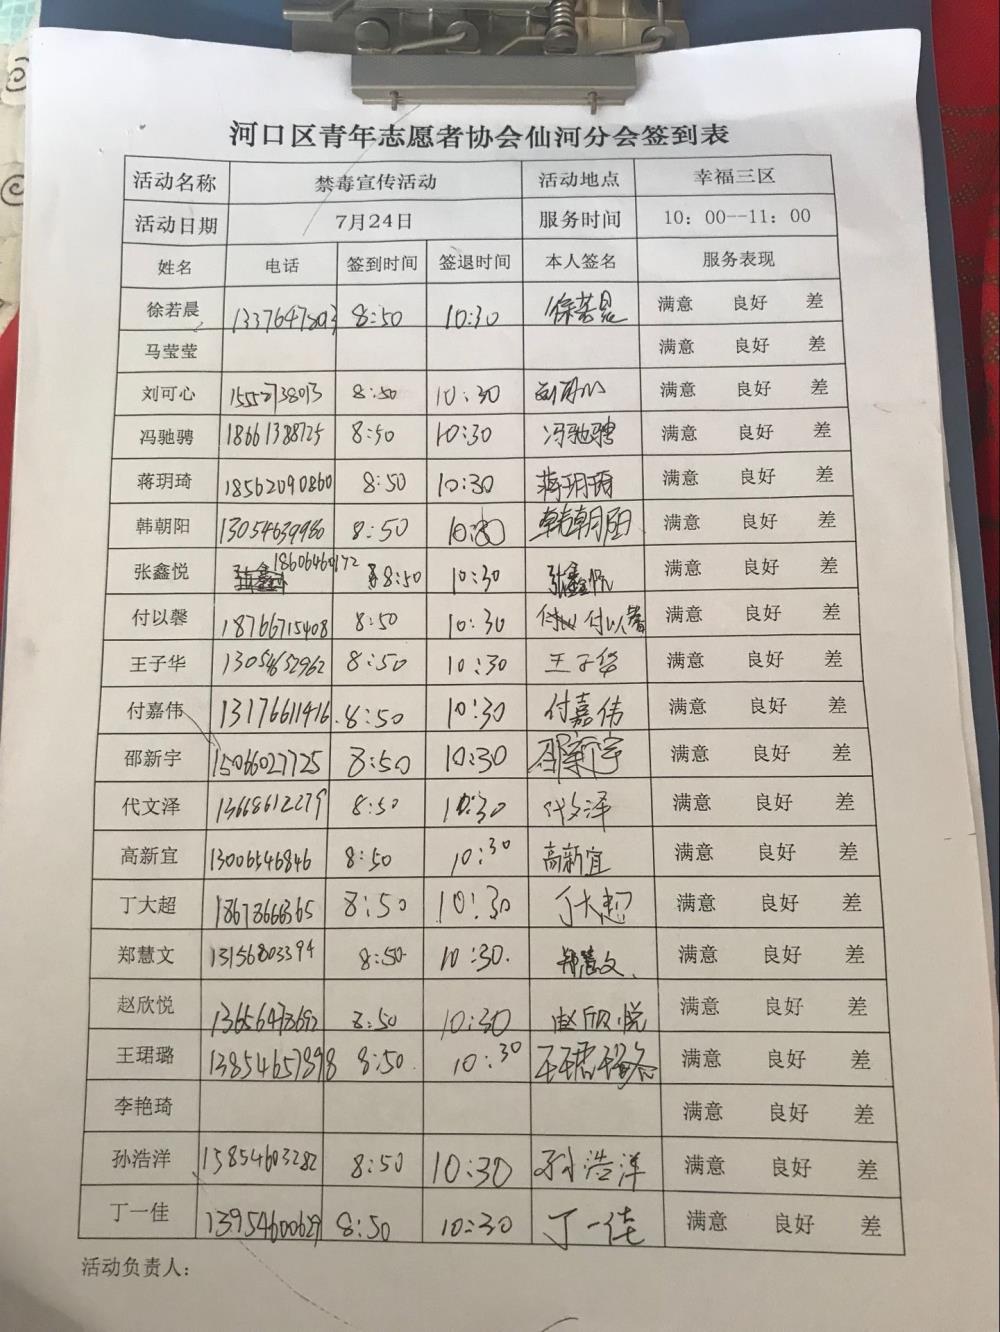 河口区青年志愿者协会仙河分会签到表
活动名称 禁毒宣传活动 活动地点 幸福三区
活动日期 7月24日 服务时间 10：00--11：00
姓名 电话 签到时间 签退时间 本人签名 服务表现
徐若晨 8:50 10:30 徐若晨 满意 良好 差
马莹莹 满意 良好 差
刘可心 8:50 10:30 刘可心 满意 良好 差
冯驰骋 18661388725 8:50 10:30 冯驰骋 满意 良好 差
蒋玥琦 18562090860 8:50 10:30 蒋玥琦 满意 良好 差
韩朝阳 13054639960 8:50 10:30 韩朝阳 满意 良好 差
张鑫悦 18606460172 8:50 10:30 张鑫悦 满意 良好 差
付以馨 18766715408 8:50 10:30 付以馨 满意 良好 差
王子华 13054632962 8:50 10:30 王子华 满意 良好 差
付嘉伟 13176611416 8:50 10:30 付嘉伟 满意 良好 差
邵新宇 15066027725 8:50 10:30 邵新宇 满意 良好 差
代文泽 13668612279 8:50 10:30 代文泽 满意 良好 差
高新宜 13006546846 8:50 10:30 高新宜 满意 良好 差
丁大超 18678666365 8:50 10:30 丁大超 满意 良好 差
郑慧文 13156803394 8:50 10:30 郑慧文 满意 良好 差
赵欣悦 13656473692 8:50 10:30 赵欣悦 满意 良好 差
王珺璐 13854657898 8:50 10:30 王珺璐 满意 良好 差
李艳琦 满意 良好 差
孙浩洋 15854603282 8:50 10:30 孙浩洋 满意 良好 差
丁一佳 13954600629 8:50 10:30 丁一佳 满意 良好 差
活动负责人：